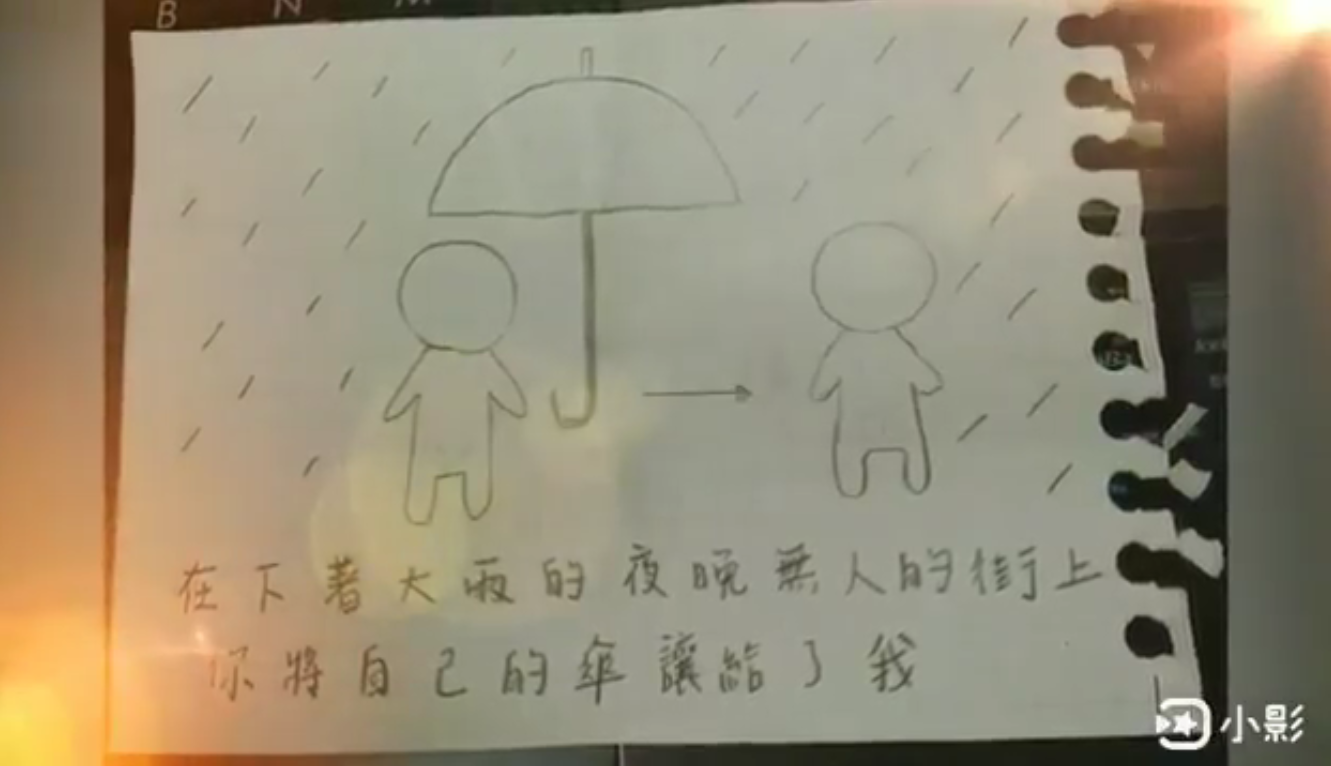 B N M
在下著大雨的夜晚無人的街上
你將自己的傘讓給了我
小影